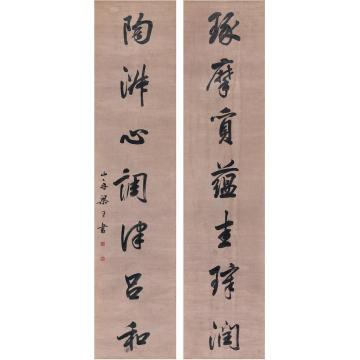 琢摩質蘊圭璋潤
陶淑心調律呂和
山舟梁同書